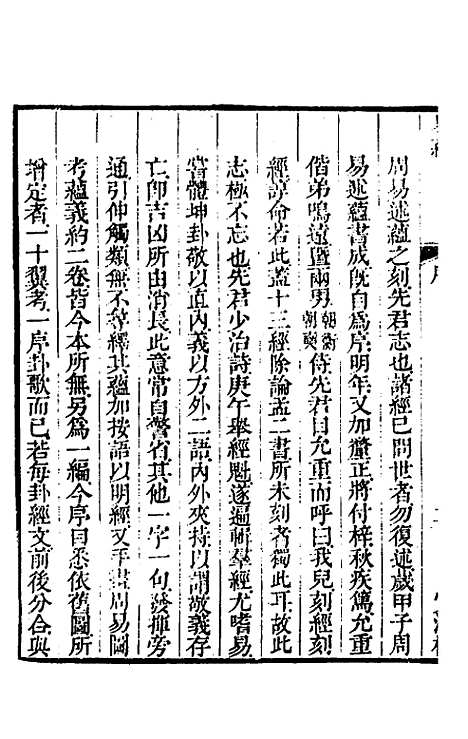 周易述蘊之刻先君志也諸經已問世者勿復述歲甲子周
易述蘊書成旣自爲序明年又加釐正將付梓秋疾篤允重
偕弟鳴遠曁兩男朝衡朝襄侍先君目允重而呼曰我兒刻經刻
經諄命若此蓋十三經除論孟二書所未刻者獨此耳故此
志極不忘也先君少治詩庚午舉經魁遂遍輯羣經尤嗜易
嘗體坤卦敬以直內義以方外二語內外夾持以謂敬義存
亡卽吉凶所由消長此意常自警省其他一字一句發揮旁
通引伸觸類無不發經其蘊加按語以明經又手畫周易圖
考蘊義約二卷皆今本所無另爲一編今序曰悉依舊圖所
增定者一十翼考一序卦歌而已若每卦經文前後分合與
序